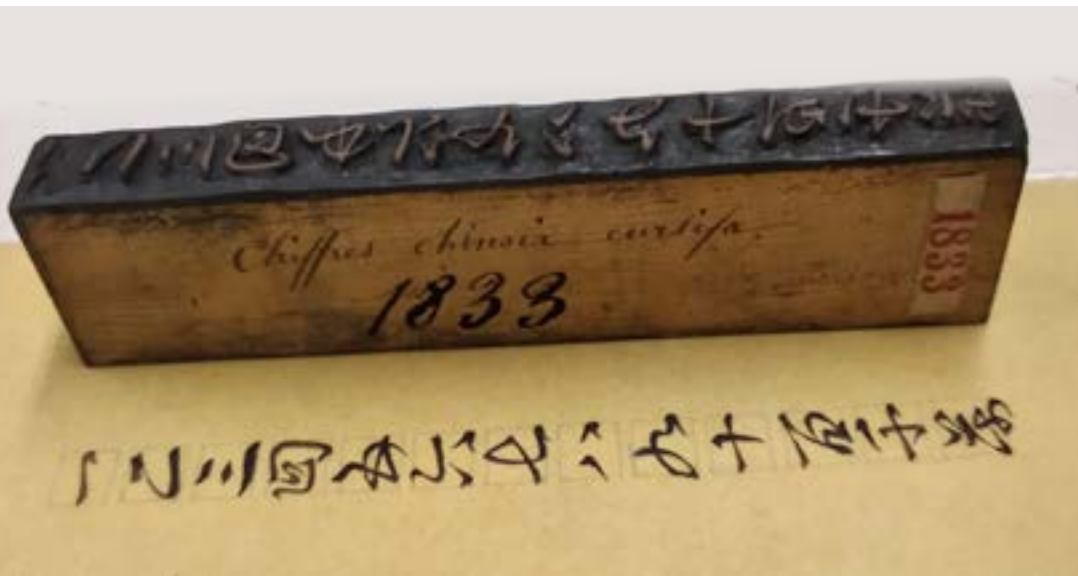 Chiffres chinois cursifs.
1833
1833
一二三四五六七八九十百千萬